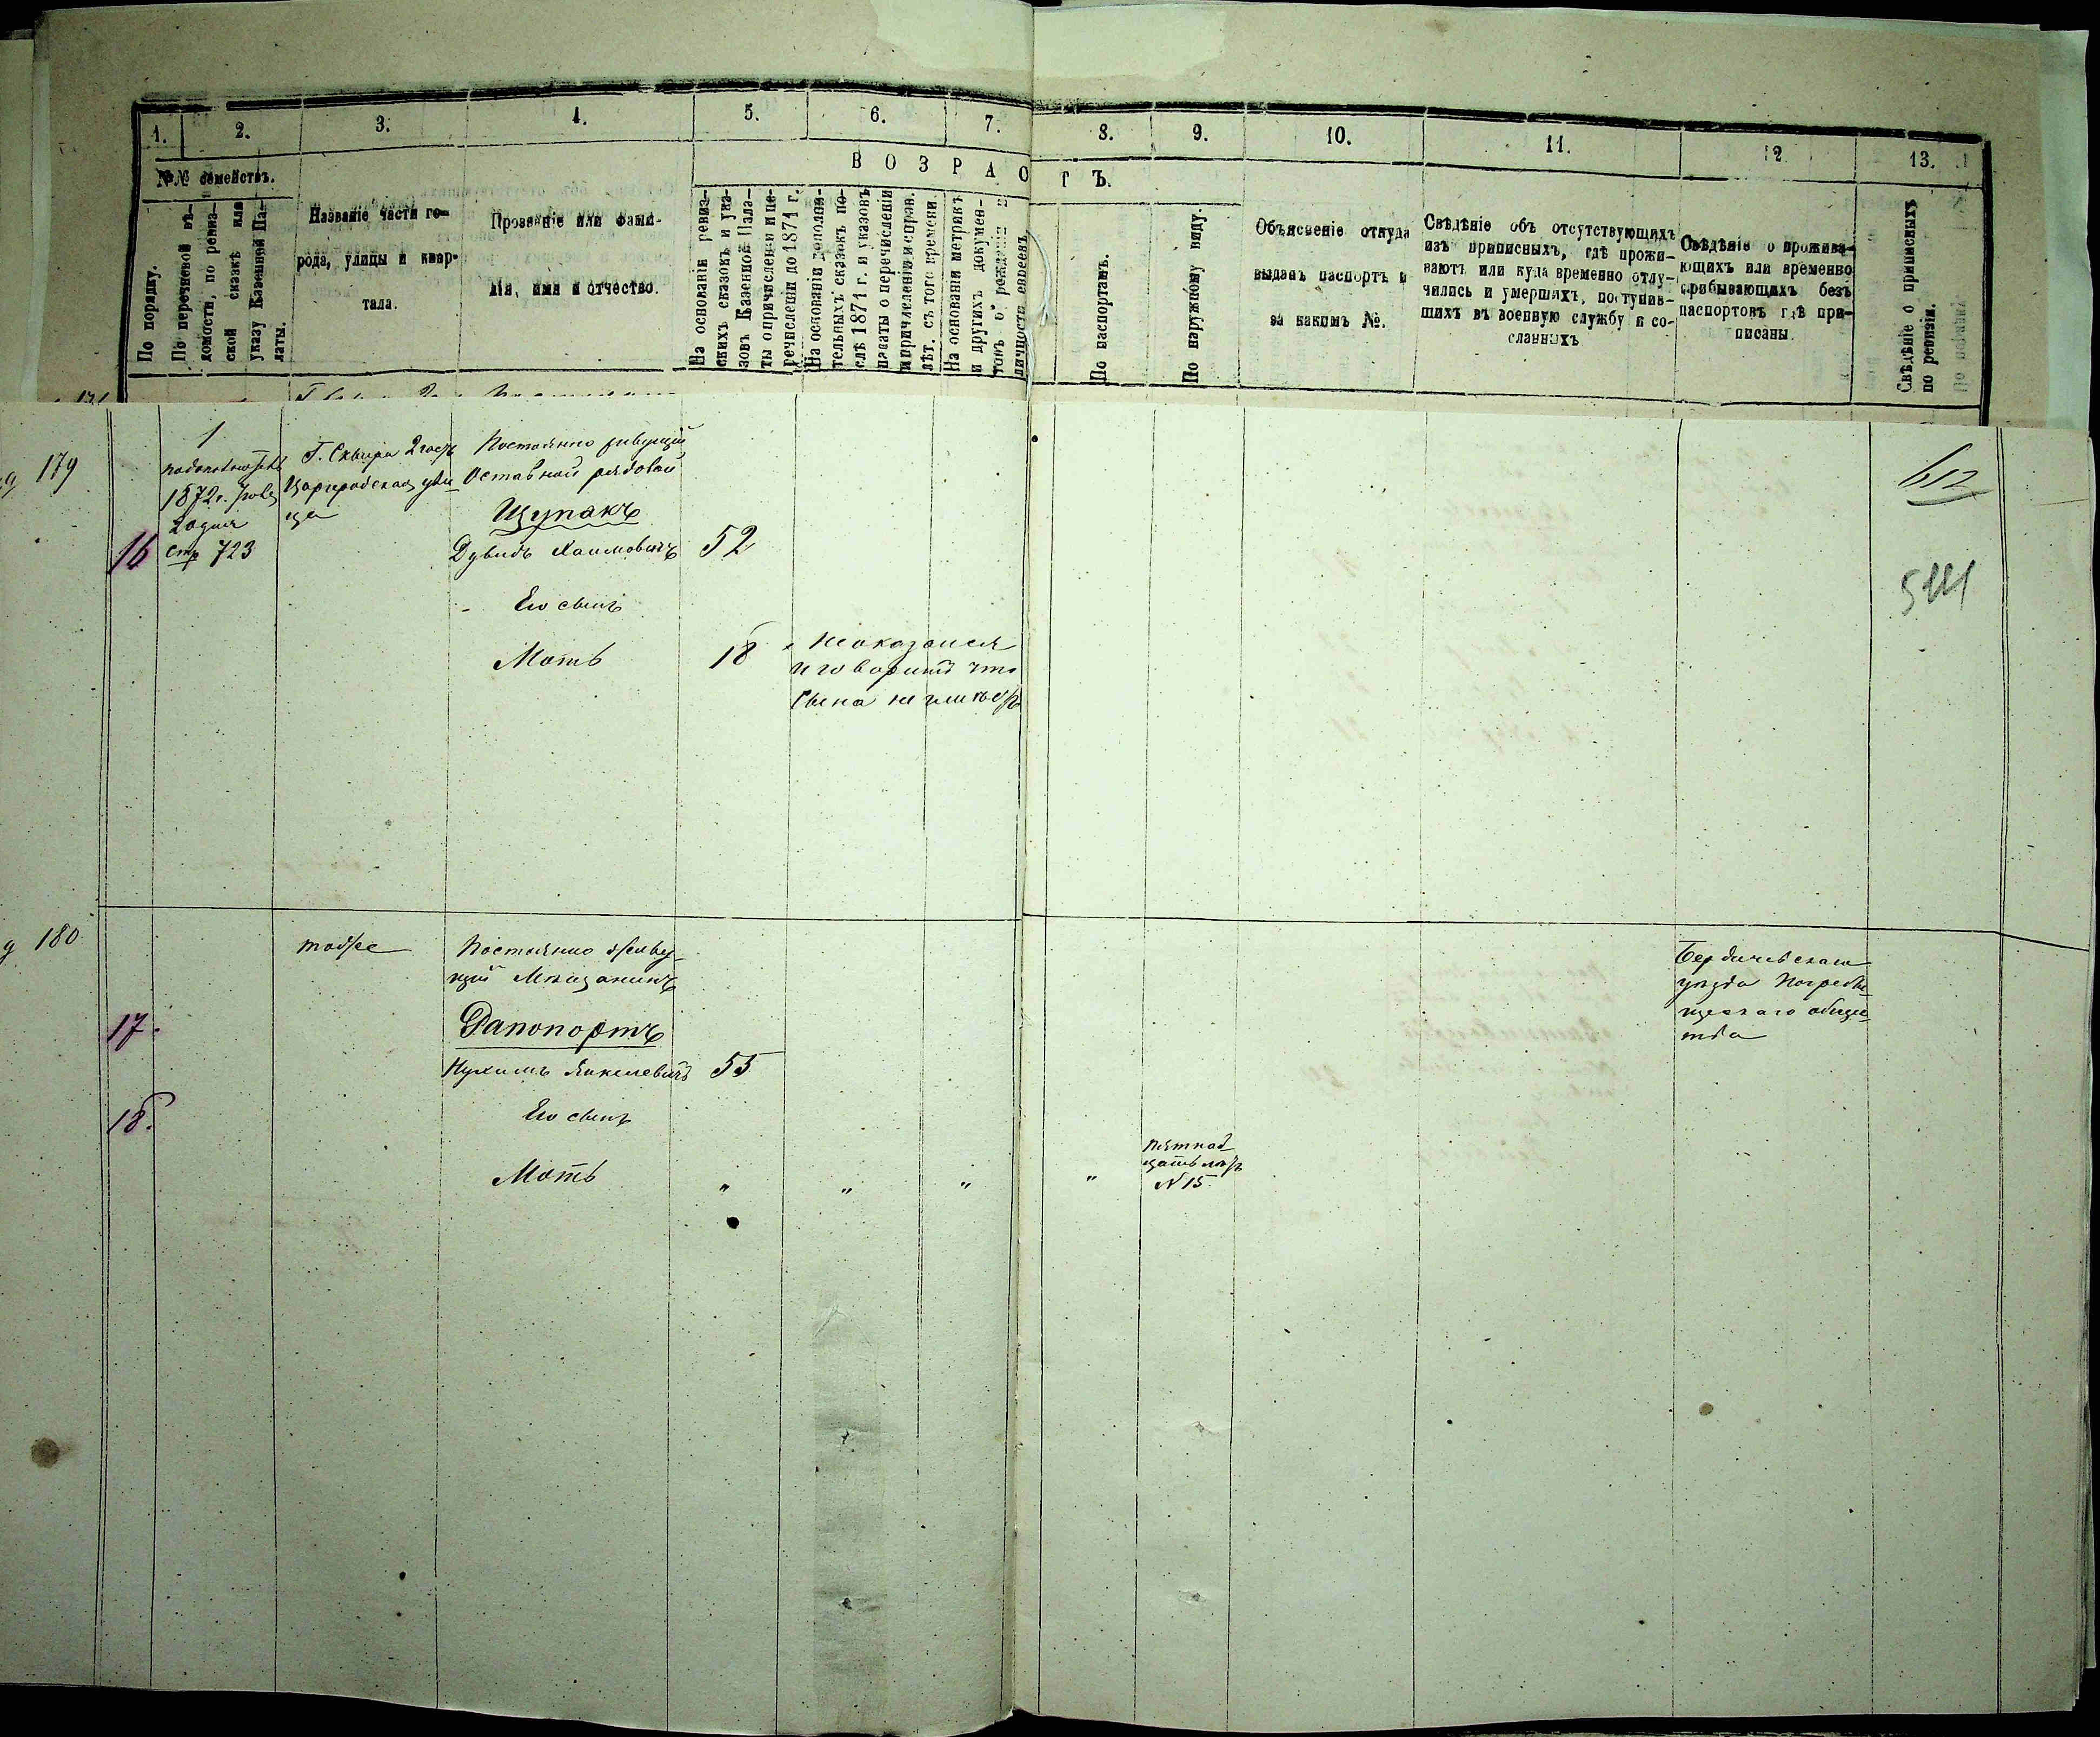 1.
2.
3.
4.
5.
6.
7.
8.
9.
10.
11.
12
13.
№№ семействъ.
В О З Р А С Т Ъ.
По порядку.
По перечневой вѣ-
домости, по ревиз-
ской сказкѣ или
указу Казенной Па-
латы.
Названіе части го-
рода, улицы и квар-
тала.
Прозваніе или фами-
лія, имя и отчество.
На основаніи ревиз-
скихъ сказокъ и ука-
зовъ Казенной Пала-
ты о причисленіи и пе-
речисленіи до 1871 г.
На основаніи дополни-
тельныхъ сказокъ по-
слѣ 1871 г. и указовъ
палаты о перечисленіи
и причисленіи и справ.
лѣт. съ того времени.
На основаніи метрикъ
и другихъ докумен-
товъ о рожденіи и
личности евреевъ
По паспортамъ.
По наружному виду.
Объясненіе откуда
выданъ паспортъ и
за какимъ №.
Свѣдѣніе объ отсутствующихъ
изъ приписныхъ, гдѣ прожи-
ваютъ или куда временно отлу-
чились и умершихъ, поступив-
шихъ въ военную службу и со-
сланныхъ
Свѣдѣніе о прожива-
ющихъ или временно
прибывающихъ безъ
паспортовъ гдѣ при-
писаны.
Свѣдѣніе о приписныхъ
по ревизіи.
179
16
1
1872 г.
20 дня
стр 723
Г. Сквира 2 часть
Цареградская ули
ца
Постоянно живущій
Оставной рядовой
Щупакъ
Дувидъ Хаимовичъ 52
Его сынъ
Моть 18
Неоказался
и говоритъ что
сына не имѣетъ
612
180
тоже
Постоянно живу-
щій Мѣщанинъ
17.
Рапопортъ
Нухимъ Янкелевичъ 55
18.
Его сынъ
Моть " " " "
пятнад
цать лѣтъ
N 15.
Бердичевскаго
уѣзда Погреби-
щескаго общес
тва